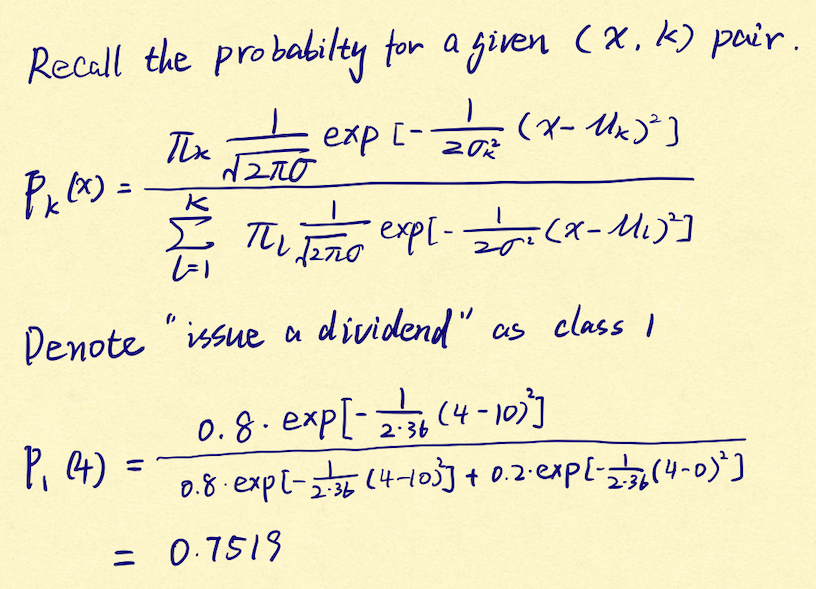 Recall the probabilty for a given (x, k) pair.
P_k(x) = \frac{\pi_k \frac{1}{\sqrt{2\pi\sigma}} \exp[-\frac{1}{2\sigma_k^2}(x-\mu_k)^2]}{\sum_{l=1}^{K} \pi_l \frac{1}{\sqrt{2\pi\sigma}} \exp[-\frac{1}{2\sigma^2}(x-\mu_l)^2]}
Denote "issue a dividend" as class 1
P_1(4) = \frac{0.8 \cdot \exp[-\frac{1}{2 \cdot 36}(4-10)^2]}{0.8 \cdot \exp[-\frac{1}{2 \cdot 36}(4-10)^2] + 0.2 \cdot \exp[-\frac{1}{2 \cdot 36}(4-0)^2]}
= 0.7519